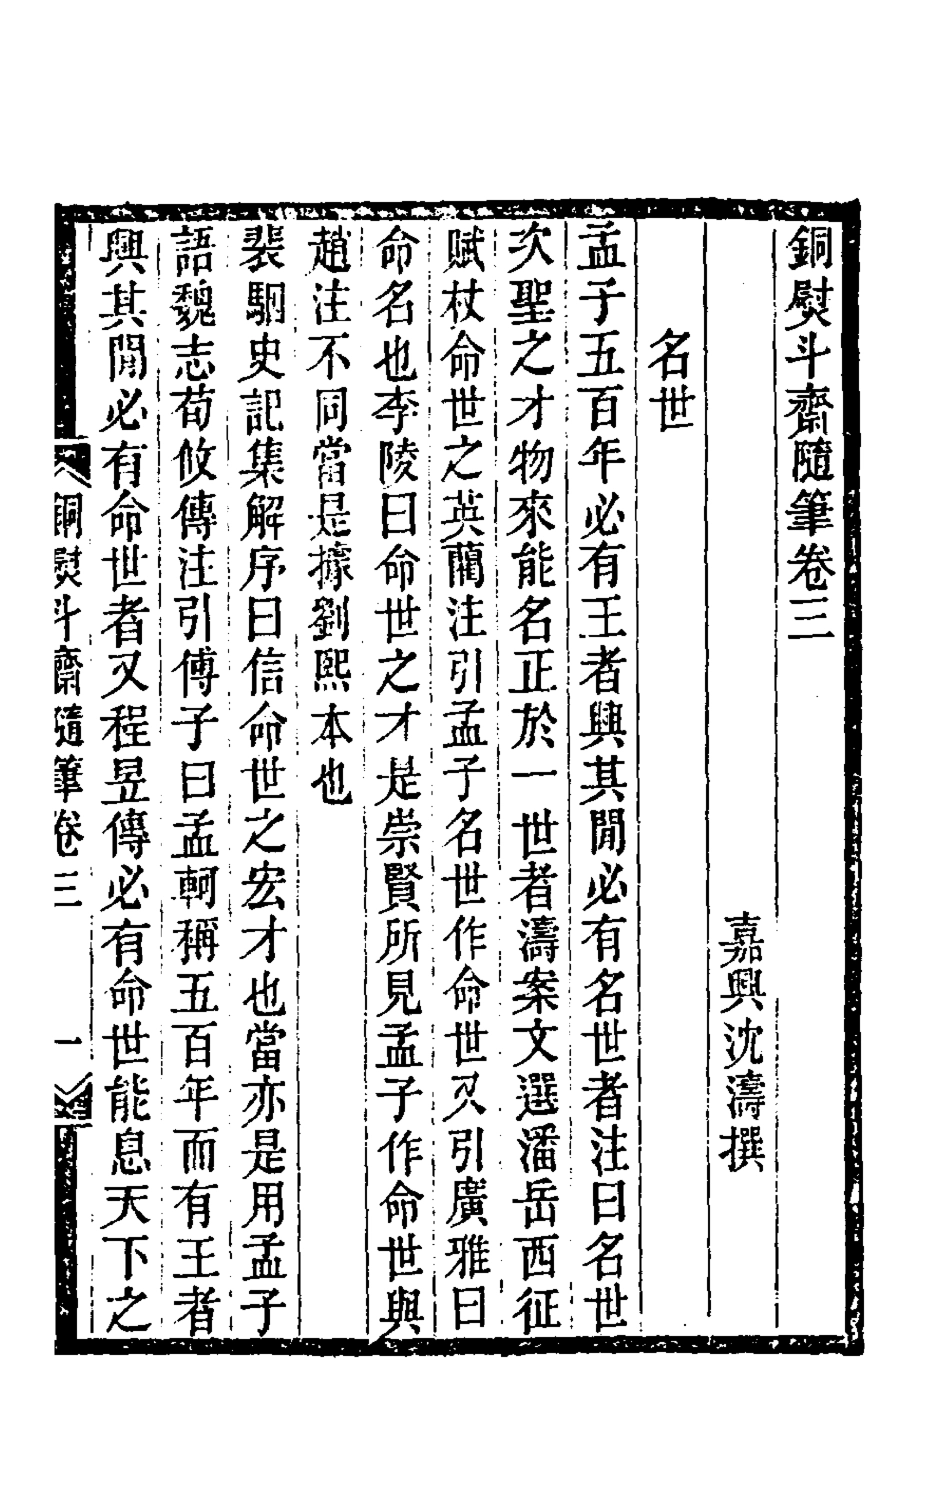 銅熨斗齋隨筆卷三
嘉興沈濤撰
名世
孟子五百年必有王者興其閒必有名世者注曰名世
次聖之才物來能名正於一世者濤案文選潘岳西征
賦杖命世之英藺注引孟子名世作命世又引廣雅曰
命名也李陵曰命世之才是崇賢所見孟子作命世與
趙注不同當是據劉熙本也
裴駰史記集解序曰信命世之宏才也當亦是用孟子
語魏志荀攸傳注引傅子曰孟軻稱五百年而有王者
興其閒必有命世者又程昱傳必有命世能息天下之
銅熨斗齋隨筆卷三
一